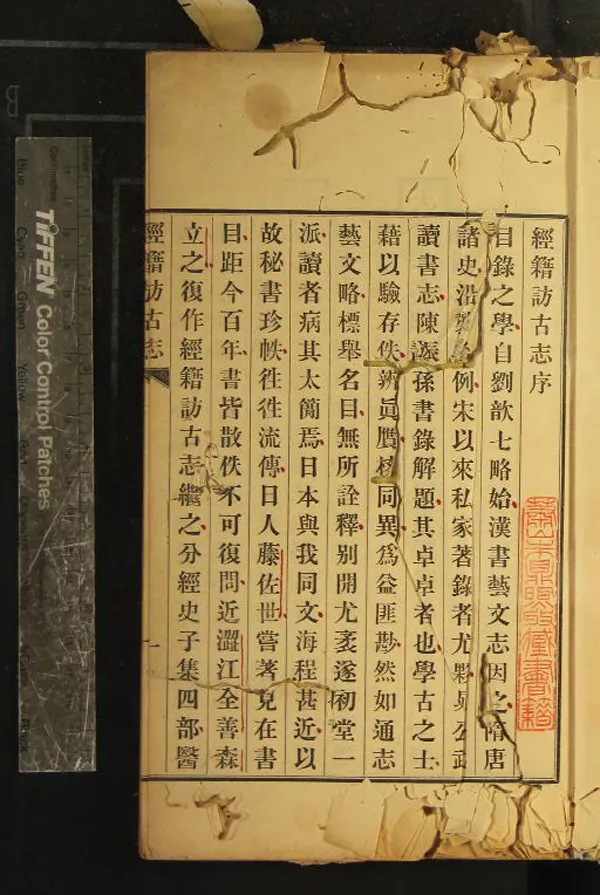 經籍訪古志序
目錄之學自劉歆七略始漢書藝文志因之隋唐
諸史沿爲例宋以來私家著錄者尤夥晁公武
讀書志陳振孫書錄解題其卓卓者也學古之士
藉以驗存佚辨眞贋核同異爲益匪尠然如通志
藝文略標舉名目無所詮釋别開尤袤遂初堂一
派讀者病其太簡焉日本與我同文海程甚近以
故秘書珍帙徃徃流傳日人藤佐世嘗著見在書
目距今百年書皆散佚不可復問近澀江全善森
立之復作經籍訪古志繼之分經史子集四部醫
經籍訪古志
一
蕭山朱鼎煦收藏書籍
TIFFEN Color Control Patches
Centimetres
Blue
Cyan
Green
Yellow
Red
Black
B